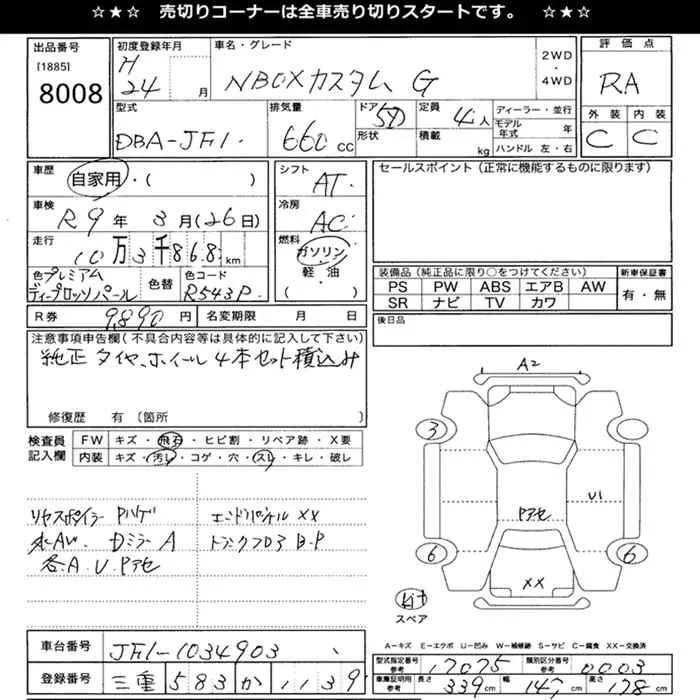 ☆★☆ 売切りコーナーは全車売り切りスタートです。 ☆★☆
出品番号
[1885]
8008
初度登録年月
H 24 月
車名・グレード
NBOXカスタム G
2WD
・
4WD
評価点
RA
外装 内装
C C
型式
DBA-JF1
排気量
660 CC
ドア 5D
形状
定員 4 人
積載 kg
ディーラー・並行
モデル年式 年
ハンドル 左・右
車歴
自家用・( )
車検
R9年 3月(26日)
走行
10万3千868km
色 プレミアム
ディープロッソパール
色替
色コード
R543P
シフト
AT
冷房
AC
燃料
ガソリン
軽・油
( )
セールスポイント(正常に機能するものに限ります)
装備品(純正品に限り○をつけてください)
PS PW ABS エアB AW
SR ナビ TV カワ
新車保証書
有・無
R券 9,890 円
名変期限 月 日
後日品
注意事項申告欄(不具合内容等は具体的に記入して下さい)
純正 タイヤ、ホイール 4本セット積込み
修復歴 有 〔箇所 〕
検査員
記入欄
FW キズ・飛石・ヒビ割・リペア跡・X要
内装 キズ・汚レ・コゲ・穴・スレ・キレ・破レ
リヤスポイラー Pハゲ
エンドパネル XX
Dミラー A
トランクフロア B.P
各A.U.Pアセ
A2
3
U1
Pアセ
6
6
XX
スペア
A-キズ E-エクボ U-凹み W-補修跡 S-サビ C-腐食 XX-交換済
車台番号
JF1-1034903
登録番号
三重 583 か 1139
型式指定番号
参考
17075
類別区分番号
参考
0003
車庫証明用
参考
長さ 339 cm
幅 147 cm
高さ 178 cm